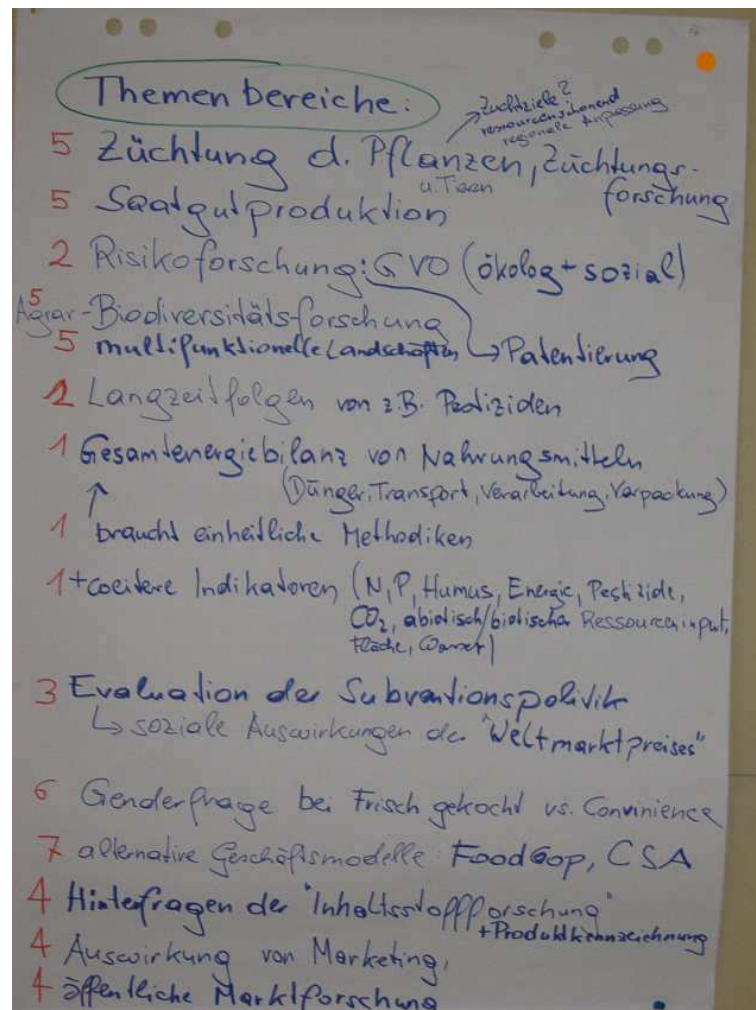 Themenbereiche:
Zuchtziele?
ressourcenschonend
regionale Anpassung
5 Züchtung d. Pflanzen, Züchtungs-
u. Tieren
forschung
5 Saatgutproduktion
2 Risikoforschung: GVO (ökolog + sozial)
5
Agrar-Biodiversitäts-forschung
5 multifunktionelle Landschaften → Patentierung
1 Langzeitfolgen von z.B. Pestiziden
1 Gesamtenergiebilanz von Nahrungsmitteln
(Dünger, Transport, Verarbeitung, Verpackung)
↑
1 braucht einheitliche Methodiken
1 + weitere Indikatoren (N, P, Humus, Energie, Pestizide,
CO₂, abiotisch/biotischer Ressourceninput,
Fläche, Wasser)
3 Evaluation der Subventionspolitik
↳ soziale Auswirkungen des "Weltmarktpreises"
6 Genderfrage bei Frisch gekocht vs. Convinience
7 alternative Geschäftsmodelle: FoodCoop, CSA
4 Hinterfragen der "Inhaltsstoffforschung"
+ Produktkennzeichnung
4 Auswirkung von Marketing,
4 öffentliche Marktforschung